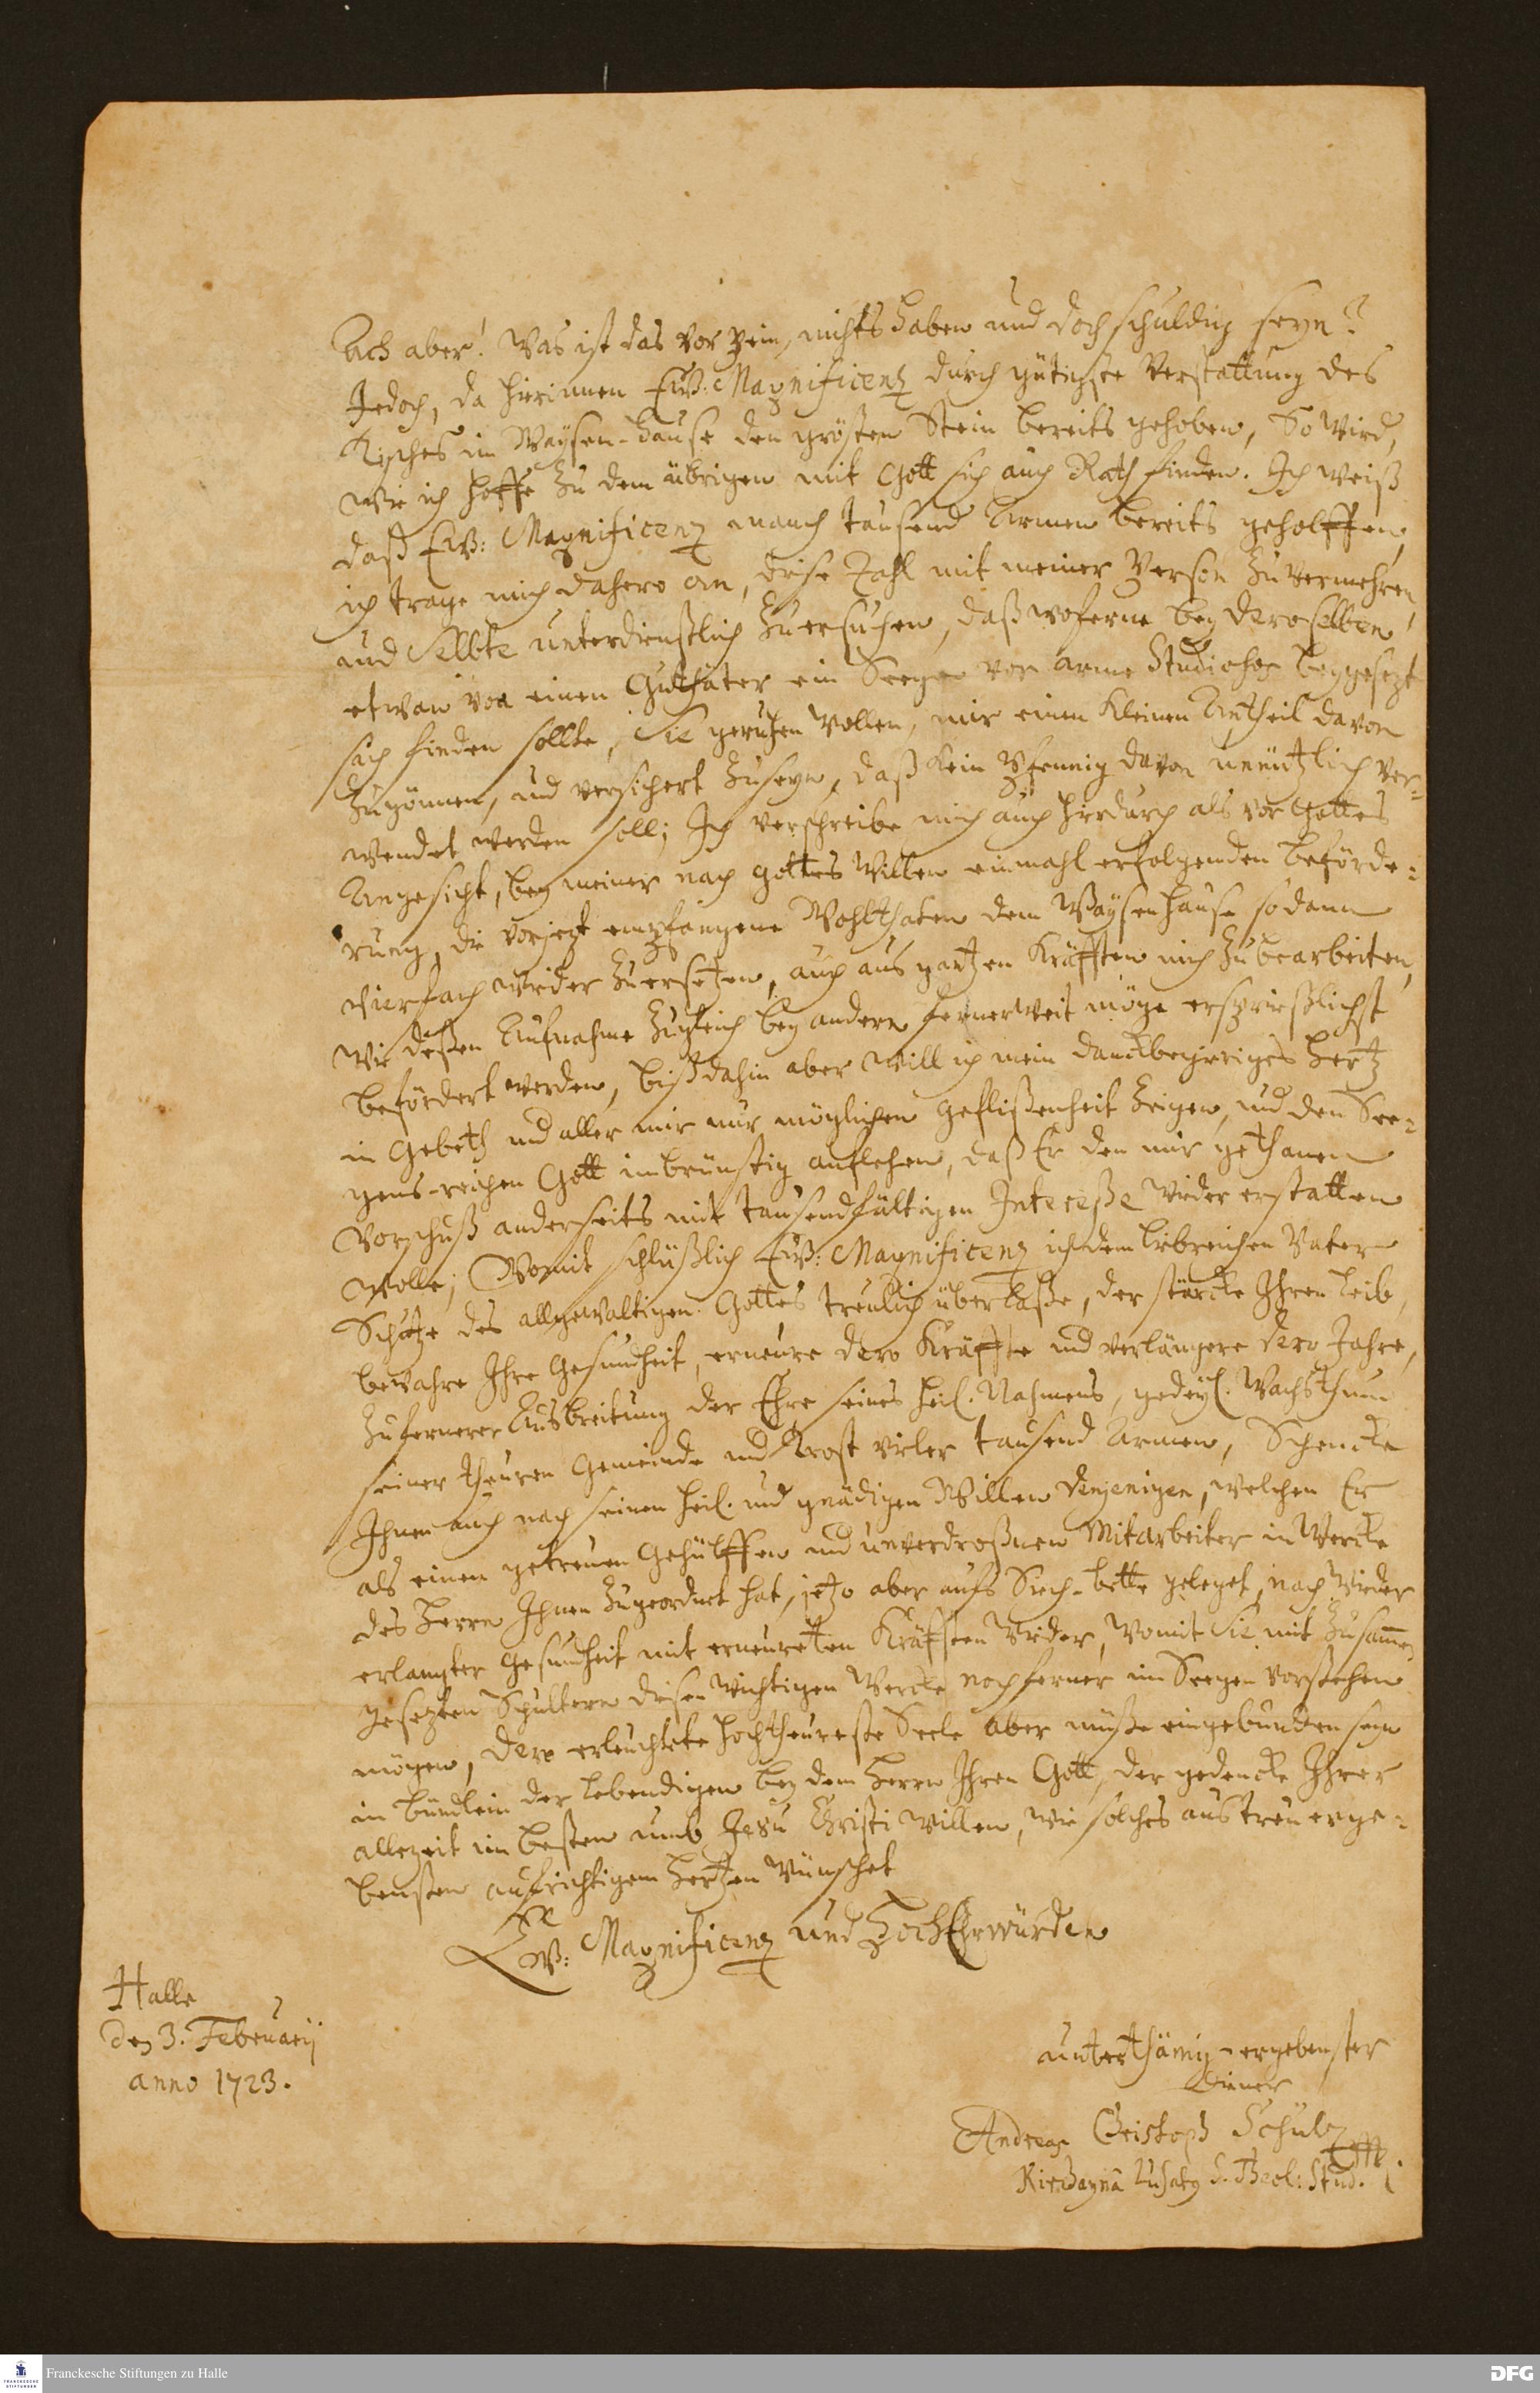 Ach aber! Was ist das vor pein, nichts haben und doch schuldig seyn?
Jedoch, da hierinnen Ew: Magnificenz durch gütigste Verstattung des
Tisches im Waysen-Hause den grösten Stein bereits gehoben, So wird,
wie ich hoffe zu dem übrigen mit Gott sich auch Rath finden. Ich weiß
daß Ew: Magnificenz manch tausend Armen bereits geholffen,
ich trage mich dahero an, diese Zahl mit meiner Person zu vermehren,
und Selbte unterdienstlich zu ersuchen, daß woferne bey Deroselben
etwan von einen Gutthäter ein Seegen vor arme Studiosos beygesezt
sich finden sollte, Sie geruhen wollen, mir einen kleinen Antheil davon
zugönnen, und versichert zuseyn, daß kein Pfennig davon unnützlich ver-
wendet werden soll; Ich verschreibe mich auch hierdurch als vor Gottes
Angesicht, bey meiner nach Gottes Willen einmahl erfolgenden beförde-
rung, die vorjezt empfangene Wohlthaten dem Waysenhause sodann
vierfach wieder zuersetzen, auch aus gantzen Kräfften mich zubearbeiten,
wie deßen Aufnahme zugleich bey andern fernerweit möge ersprießlichst
befördert werden, biß dahin aber will ich mein danckbegieriges Hertz
in Gebeth und aller mir nur möglichen Geflißenheit zeigen, und den See-
gens-reichen Gott inbrünstig anflehen, daß Er den mir gethanen
Vorschuß anderseits mit tausendfältigen Intereße wieder erstatten
wolle; Womit schlüßlich Ew: Magnificenz ich dem liebreichen Vater
Schutze des allgewaltigen Gottes treulich überlaße, der stärcke Ihren Leib,
bewahre Ihre Gesundheit, erneure dero Kräffte und verlängere dero Jahre,
zu fernerer Ausbreitung der Ehre seines heil. Nahmens, gedeyl. Wachsthum
seiner theuren Gemeinde und Trost vieler tausend Armen, Schencke
Ihnen auch nach seinen heil. und gnädigen Willen denjenigen, welchen Er
als einen getreuen Gehülffen und unverdroßnen Mitarbeiter in Wercke
des Herrn Ihnen zugeordnet hat, jetzo aber aufs Siech-bette geleget, nach wieder
erlangter Gesundheit mit erneureten Kräfften wieder, womit Sie mit zusammen
gesezten Schultern diesen wichtigen Wercke noch ferner im Seegen vorstehen
mögen, Dero erleuchtete hochtheureste Seele aber müße eingebunden seyn
in bündlein der Lebendigen bey dem Herrn Ihren Gott, der gedencke Ihrer
allezeit im besten umb Jesu Christi willen, wie solches aus treu erge-
bensten aufrichtigem Hertzen wünschet
Ew: Magnificenz und HochEhrwürden
Halle
den 3. Februarij
anno 1723.
unterthänig-ergebenster
Diener
Andreas Christoph Schulz
Lusaty S. Theol: Stud.
Franckesche Stiftungen zu Halle
FRANCKESCHE
STIFTUNGEN
DFG